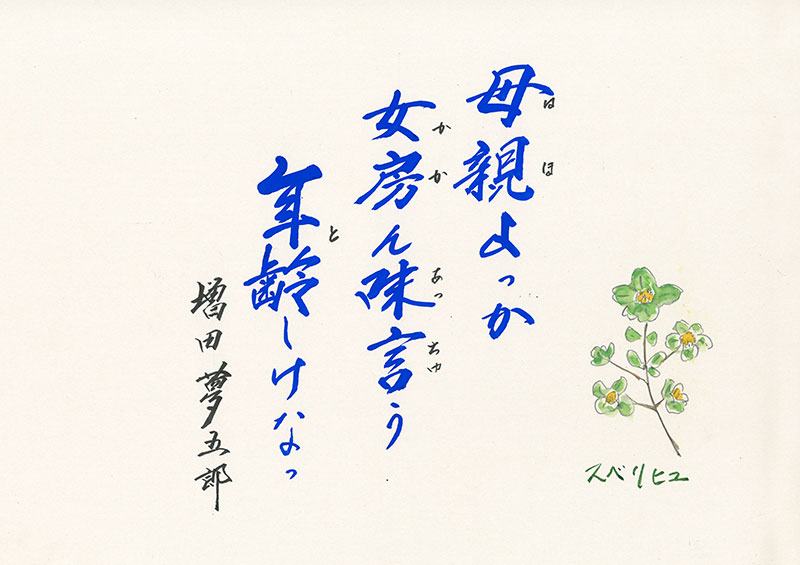 母親よっか
はほ
女房ん味言う
かか あっ ちゅ
年齢しけなっ
と
増田夢五郎
スベリヒユ